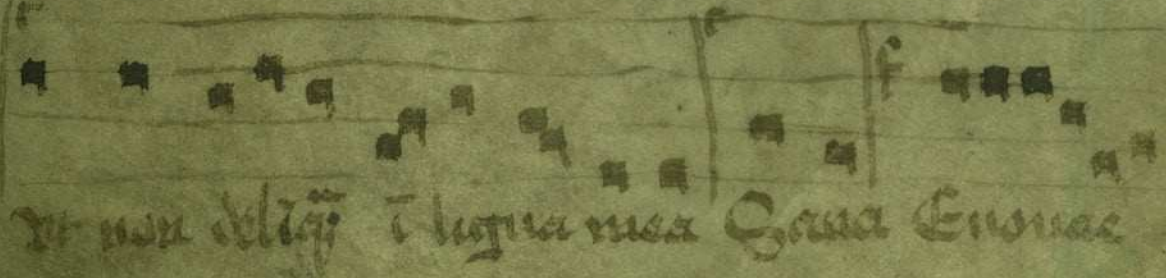 ut non delīqā ī ligua mea Sana Euouae